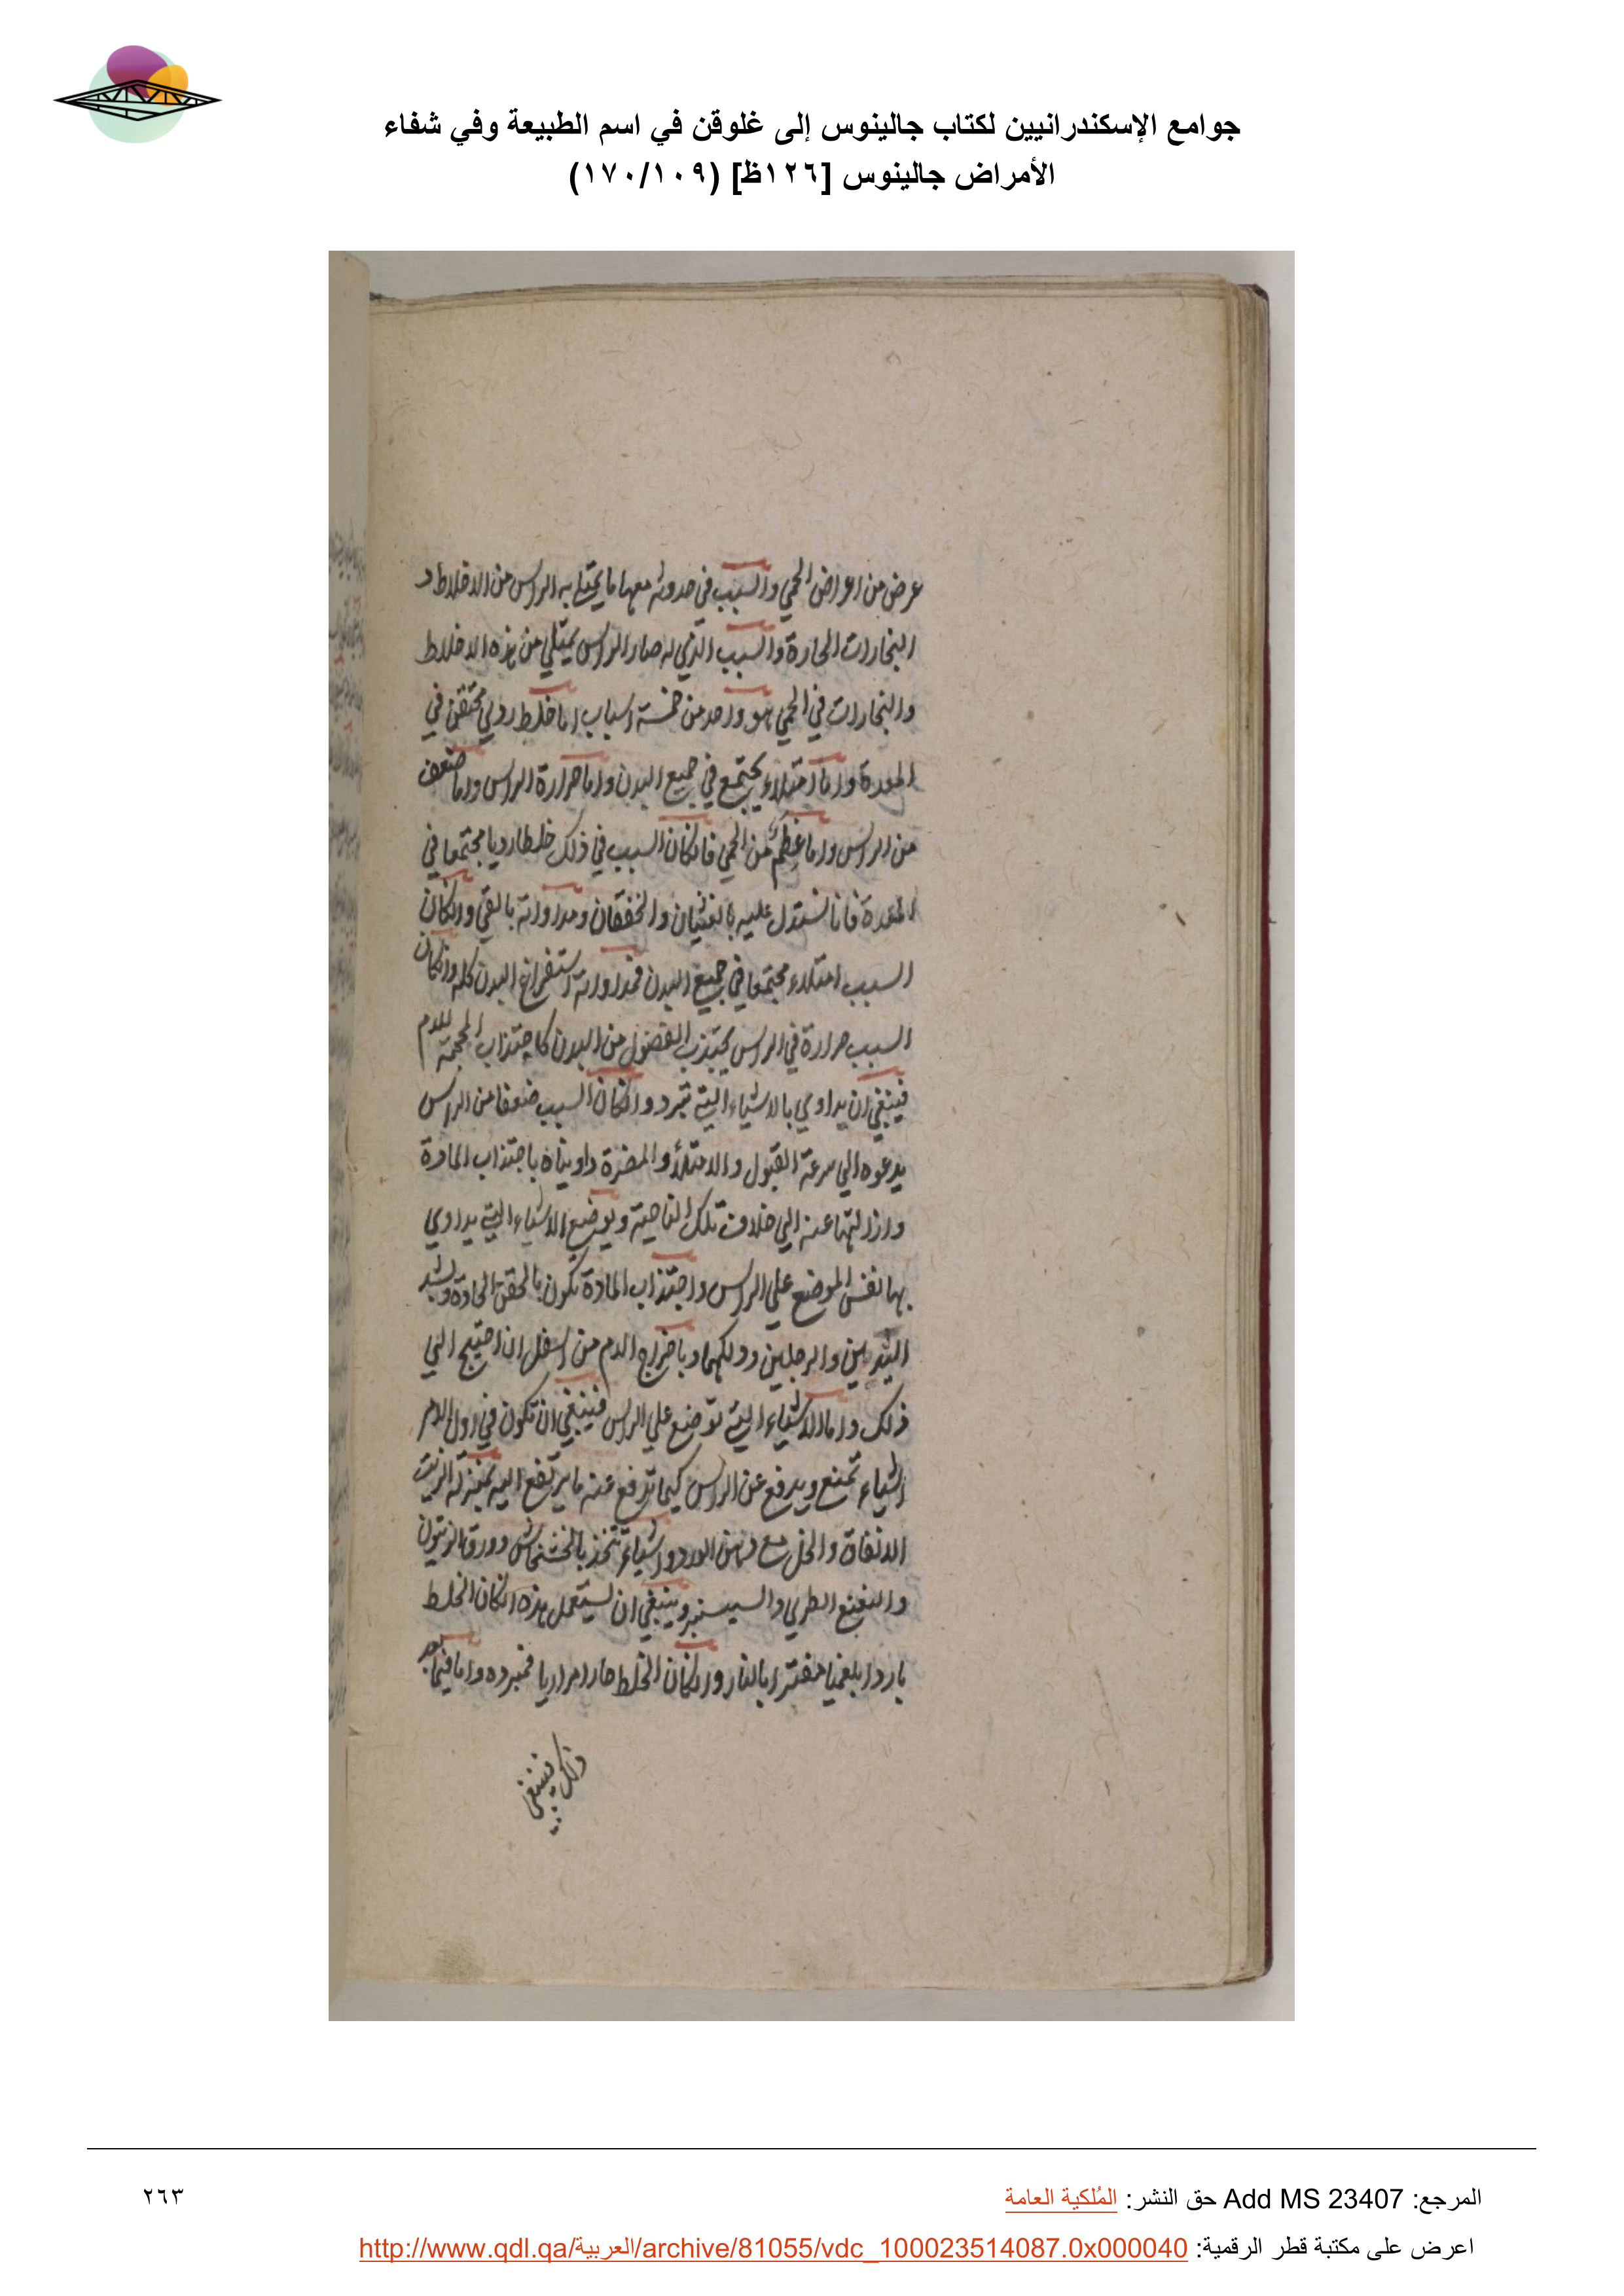 جوامع الإسكندرانيين لكتاب جالينوس إلى غلوقن في اسم الطبيعة وفي شفاء
الأمراض جالينوس [١٢٦ظ] (١٧٠/١٠٩)
عرض من اعراض الحمي والسبب في حدوثه معها ما يمتلي به الراس من الاخلاط و
البخارات الحارة والسبب الذي له صار الراس يمتلي من هذه الاخلاط
والبخارات في الحمي هو واحد من خمسة اسباب اما خلط ردي محتقن في
المعدة واما امتلاء يجتمع في جميع البدن واما حرارة الراس واما ضعف
من الراس واما عظم من الحمي فانكان السبب في ذلك خلطا رديا مجتمعا في
المعدة فانا نستدل عليه بالغثيان والخفقان ومداواته بالقي وانكان
السبب امتلاء مجتمعا في جميع البدن فمداواته استفراغ البدن كله وانكان
السبب حرارة في الراس يجتذب الفضول من البدن كاجتذاب المحجمة للدم
فينبغي ان يداوي بالاشياء التي تبرد وانكان السبب ضعفا من الراس
يدعوه الي سرعة القبول والامتلاء والمضرة داويناه باجتذاب المادة
وازالتها عنه الي خلاف تلك الناحية ويوضع الاشياء التي يداوي
بها نفس الموضع علي الراس واجتذاب المادة تكون بالحقن الحادة وبشد
اليدين والرجلين ودلكهما وباخراج الدم من اسفل ان احتيج الي
ذلك واما الاشياء التي توضع علي الراس فينبغي ان تكون في اول الامر
اشياء تمنع ويدفع عن الراس كيما تدفع عنه ما يرتفع اليه بمنزلة الزيت
الانفاق والخل مع دهن الورد واشياء تتخذ بالخشخاش وورق الزيتون
والنعنع الطري والسيسنبر وينبغي ان يستعمل هذه انكان الخلط
باردا بلغميا مفترا بالنار وانكان الخلط حارا مراريا فمبرده واما فيما بعد
ذلك فينبغي
المرجع: Add MS 23407 حق النشر: المُلكية العامة
٢٦٣
اعرض على مكتبة قطر الرقمية: http://www.qdl.qa/العربية/archive/81055/vdc_100023514087.0x000040